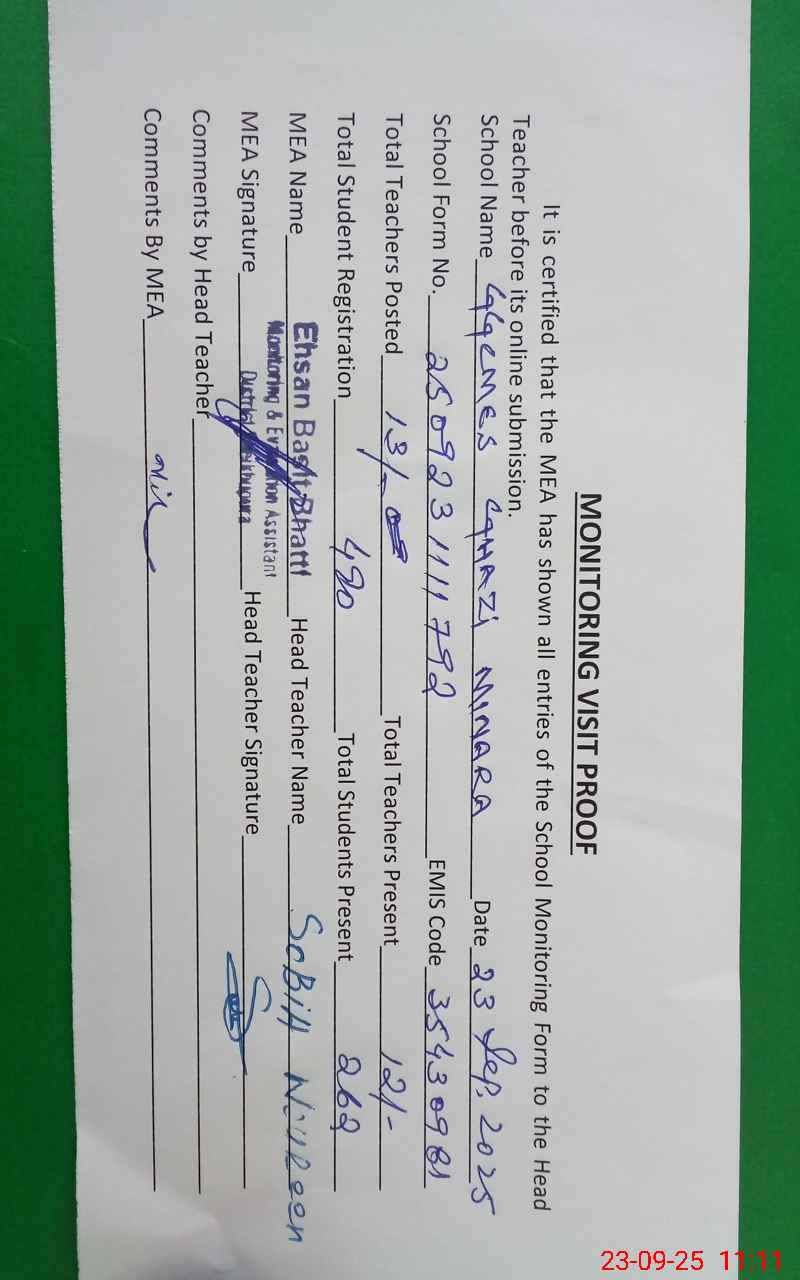 MONITORING VISIT PROOF
It is certified that the MEA has shown all entries of the School Monitoring Form to the Head
Teacher before its online submission.
School Name GGCMES GHAZI MINARA Date 23 Sep. 2025
School Form No. 250923 1111792 EMIS Code 35430981
Total Teachers Posted 13/- Total Teachers Present 12/-
Total Student Registration 490 Total Students Present 262
MEA Name Ehsan Basit Bhatti Head Teacher Name SOBIA Noureen
Monitoring & Evaluation Assistant
District Sheikhupura
MEA Signature Head Teacher Signature
Comments by Head Teacher
Comments By MEA Nil
23-09-25 11:11